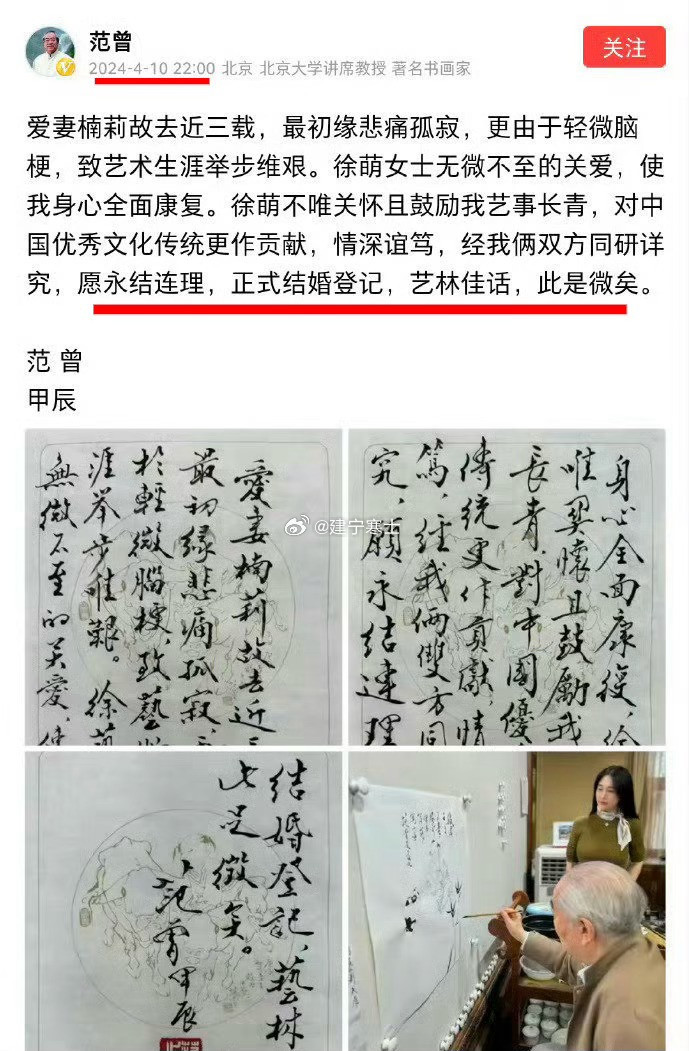 范曾
2024-4-10 22:00 北京 北京大学讲席教授 著名书画家
关注
爱妻楠莉故去近三载，最初缘悲痛孤寂，更由于轻微脑
梗，致艺术生涯举步维艰。徐萌女士无微不至的关爱，使
我身心全面康复。徐萌不唯关怀且鼓励我艺事长青，对中
国优秀文化传统更作贡献，情深谊笃，经我俩双方同研详
究，愿永结连理，正式结婚登记，艺林佳话，此是微矣。
范 曾
甲辰
愛妻楠莉故去近三
最初緣悲痛孤寂，
於輕微腦梗，致藝
涯举步唯艱。徐萌
無微不至的关愛，使
身心全面康復，徐
唯関懷且鼓勵我
長青，對中國優
傳統更作貢獻，情
篤，經我倆雙方同
究，願永结連理
@建宁寒士
结婚登記，藝林
此足徵矣。
范曾甲辰